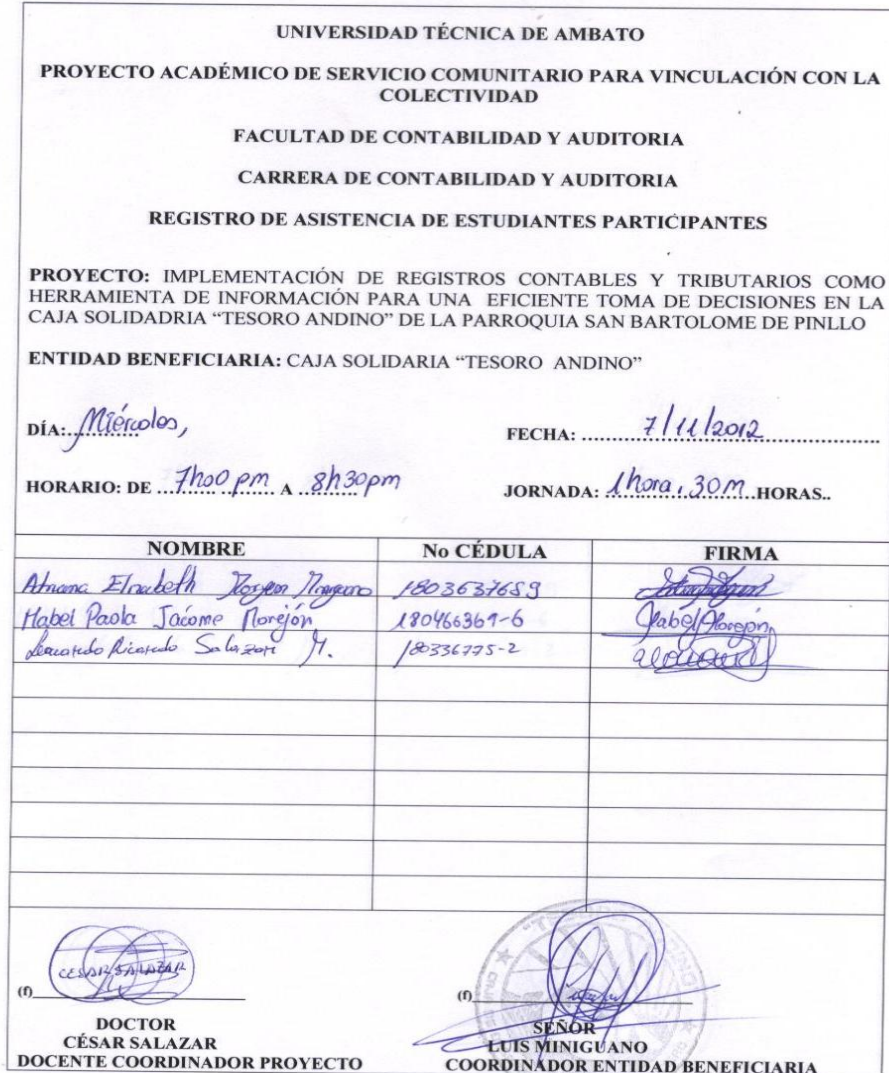 UNIVERSIDAD TÉCNICA DE AMBATO
PROYECTO ACADÉMICO DE SERVICIO COMUNITARIO PARA VINCULACIÓN CON LA
COLECTIVIDAD
FACULTAD DE CONTABILIDAD Y AUDITORIA
CARRERA DE CONTABILIDAD Y AUDITORIA
REGISTRO DE ASISTENCIA DE ESTUDIANTES PARTICIPANTES
PROYECTO: IMPLEMENTACIÓN DE REGISTROS CONTABLES Y TRIBUTARIOS COMO
HERRAMIENTA DE INFORMACIÓN PARA UNA EFICIENTE TOMA DE DECISIONES EN LA
CAJA SOLIDADRIA “TESORO ANDINO” DE LA PARROQUIA SAN BARTOLOME DE PINLLO
ENTIDAD BENEFICIARIA: CAJA SOLIDARIA “TESORO ANDINO”
DÍA: Miércoles, FECHA: 7/11/2012
HORARIO: DE 7h00 pm A 8h30pm JORNADA: 1hora, 30m HORAS..
NOMBRE No CÉDULA FIRMA
1803637659
Mabel Paola Jácome Morejón 180466369-6 Mabel Morejón
Leonardo Ricardo Salazar M. 180336775-2
CESAR SALAZAR
(f) (f)
DOCTOR SEÑOR
CÉSAR SALAZAR LUIS MINIGUANO
DOCENTE COORDINADOR PROYECTO COORDINADOR ENTIDAD BENEFICIARIA